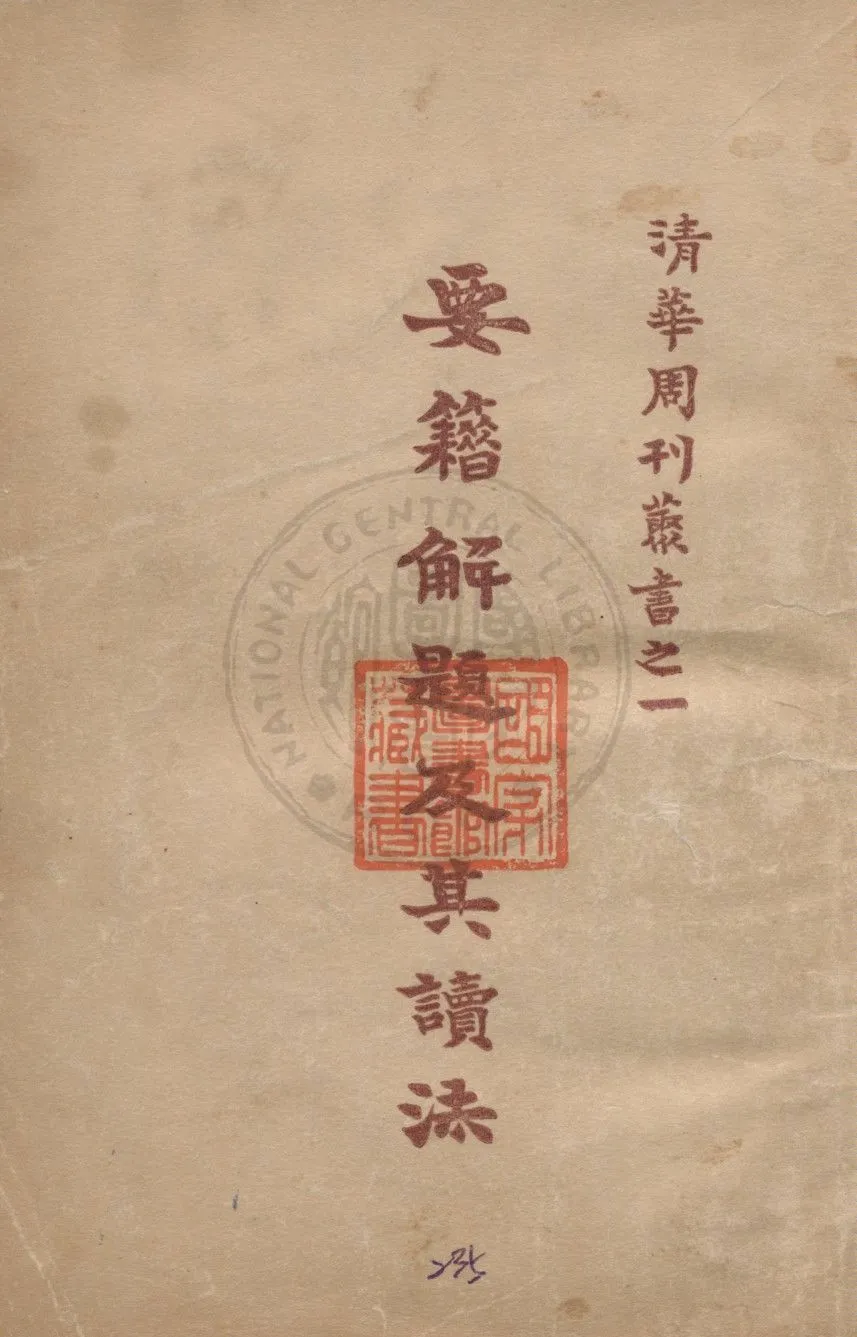 清華周刊叢書之一
要籍解題及其讀法
NATIONAL CENTRAL LIBRARY
藏書
235